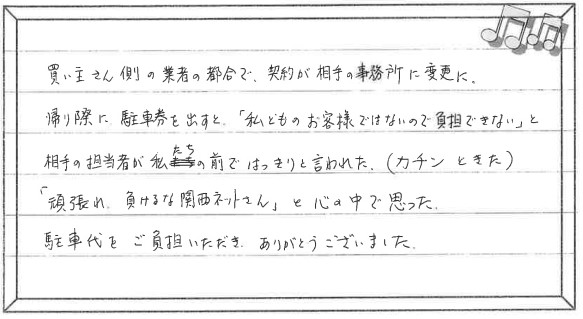 買い主さん側の業者の都合で、契約が相手の事務所に変更に。
帰り際に駐車券を出すと、「私どものお客様ではないので負担できない」と
相手の担当者が私たちの前ではっきりと言われた。(カチンときた)
「頑張れ、負けるな関西ネットさん」と心の中で思った。
駐車代をご負担いただき、ありがとうございました。